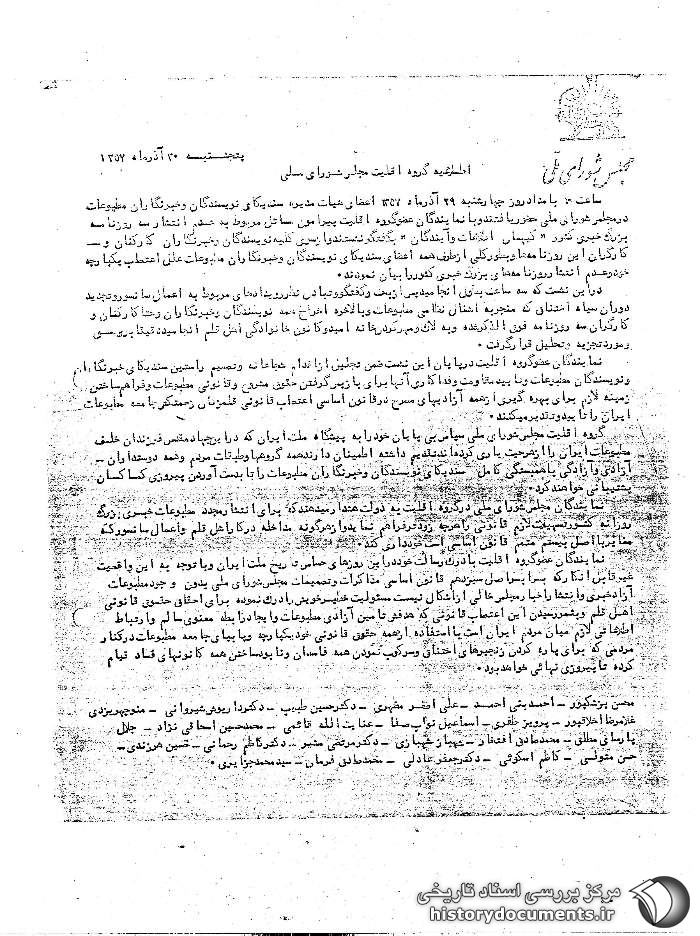 مجلس شورای ملی
پنجشنبه ۳۰ آذرماه ۱۳۵۷
اطلاعیه گروه اقلیت مجلس شورای ملی
ساعت ۱۰ بامداد روز چهارشنبه ۲۹ آذرماه ۱۳۵۷ اعضای هیات مدیره سندیکای نویسندگان و خبرنگاران مطبوعات
در مجلس شورای ملی حضور یافتند و با نمایندگان عضو گروه اقلیت پیرامون مسائل مربوط به عدم انتشار سه روزنامه
بزرگ خبری کشور « کیهان، اطلاعات و آیندگان » بگفتگو نشستند و از سوی کلیه نویسندگان و خبرنگاران کارکنان و
کارگران این روزنامه‌ها و بطور کلی از طرف همه اعضای سندیکای نویسندگان و خبرنگاران مطبوعات علل اعتصاب یکپارچه
خود و عدم انتشار روزنامه‌های بزرگ خبری کشور را بیان نمودند.
در این نشست که سه ساعت بطول انجامید پس از بحث و گفتگو و تبادل نظر رویدادهای مربوط به اعمال سانسور و تجدید
دوران سیاه اختناق که منجر به اشغال نظامی مطبوعات و بالاخره اخراج همه نویسندگان و خبرنگاران و حتا کارکنان و
کارگران سه روزنامه فوق الذکر شده و به لاک و مهر کردن خانه امید و کانون خانوادگی اهل قلم انجامیده دقیقا بررسی
و مورد تجزیه و تحلیل قرار گرفت.
نمایندگان عضو گروه اقلیت در پایان این نشست ضمن تجلیل از اقدام شجاعانه و تصمیم راستین سندیکای خبرنگاران
و نویسندگان مطبوعات و تایید مقاومت و فداکاری آنها برای باز پس گرفتن حقوق مشروع و قانونی مطبوعات و فراهم ساختن
زمینه لازم برای بهره گیری از همه آزادیهای مصرح در قانون اساسی اعتصاب قانونی قلمزنان زحمتکش جامعه مطبوعات
ایران را تایید و تقدیر میکنند.
گروه اقلیت مجلس شورای ملی سپاس بی پایان خود را به پیشگاه ملت ایران که در این جهاد مقدس فرزندان خلف
مطبوعات ایران را از هر حیث یاری کرده‌اند تقدیم داشته اطمینان دارند همه گروهها و طبقات مردم و همه دوستداران
آزادی و آزادگی با همبستگی کامل سندیکای نویسندگان و خبرنگاران مطبوعات را تا بدست آوردن پیروزی کماکان
پشتیبانی خواهند کرد.
نمایندگان مجلس شورای ملی در گروه اقلیت به دولت هشدار میدهند که برای انتشار مجدد مطبوعات خبری بزرگ
روزانه کشور تسهیلات لازم قانونی را هرچه زودتر فراهم نماید و از هرگونه مداخله در کار اهل قلم و اعمال سانسور که
مغایر با اصل بیستم متمم قانون اساسی است خودداری کند.
نمایندگان عضو گروه اقلیت با درک رسالت خود در این روزهای حساس تاریخ ملت ایران و با توجه به این واقعیت
غیر قابل انکار که بنا بر اصل سیزدهم قانون اساسی مذاکرات و تصمیمات مجلس شورای ملی بدون وجود مطبوعات
آزاد خبری و انتشار اخبار مجلس خالی از اشکال نیست مسئولیت خطیر خویش را درک نموده برای احقاق حقوق قانونی
اهل قلم و بثمر رسیدن این اعتصاب قانونی که هدفش تامین آزادی مطبوعات و ایجاد رابطه معنوی سالم و ارتباط
اطلاعاتی لازم میان مردم ایران است با استفاده از همه حقوق قانونی خود یکپارچه و پا بپای جامعه مطبوعات در کنار
مردمی که برای پاره کردن زنجیرهای اختناق و سرکوب نمودن همه فاسدان و نابود ساختن همه کانونهای فساد قیام
کرده تا پیروزی نهائی خواهد بود.
محسن پزشکپور - احمد بنی احمد - علی اصغر مظهری - دکتر حسین طبیب - دکتر داریوش شیروانی - منوچهر یزدی
غلامرضا اخلاقپور - پرویز ظفری - اسماعیل نواب صفا - عنایت الله قائمی - محمد حسین اسحاقی نژاد - جلال
پارسای مطلق - محمد صادق افتخار - شهباز شهبازی - دکتر مرتضی مشیر - دکتر کاظم رحمانی - حسین هرزندی -
حسن متولی - کاظم اسکوئی - دکتر جعفر عادلی - محمد صادق فرمان - سید محمد جزایری.
مرکز بررسی اسناد تاریخی
historydocuments.ir